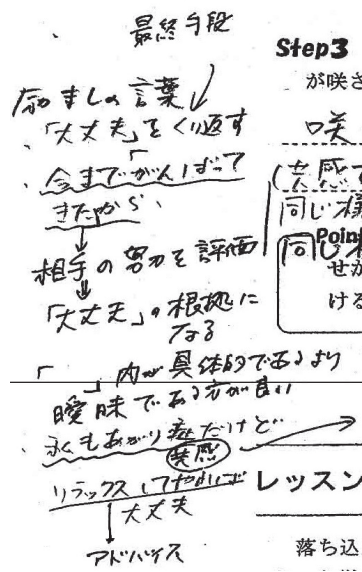 最終手段
励ましの言葉
「大丈夫」をくり返す
「今までがんばって
きたから、
相手の努力を評価
「大丈夫」の根拠に
なる
「　」内が具体的であるより
曖昧である方が良い
もあがり症だけど
共感
リラックスしてやれば
大丈夫
アドバイス
Step3
が咲さ
咲
(共感
同じ様
Point
同じ
せか
ける
レッスン
落ち込